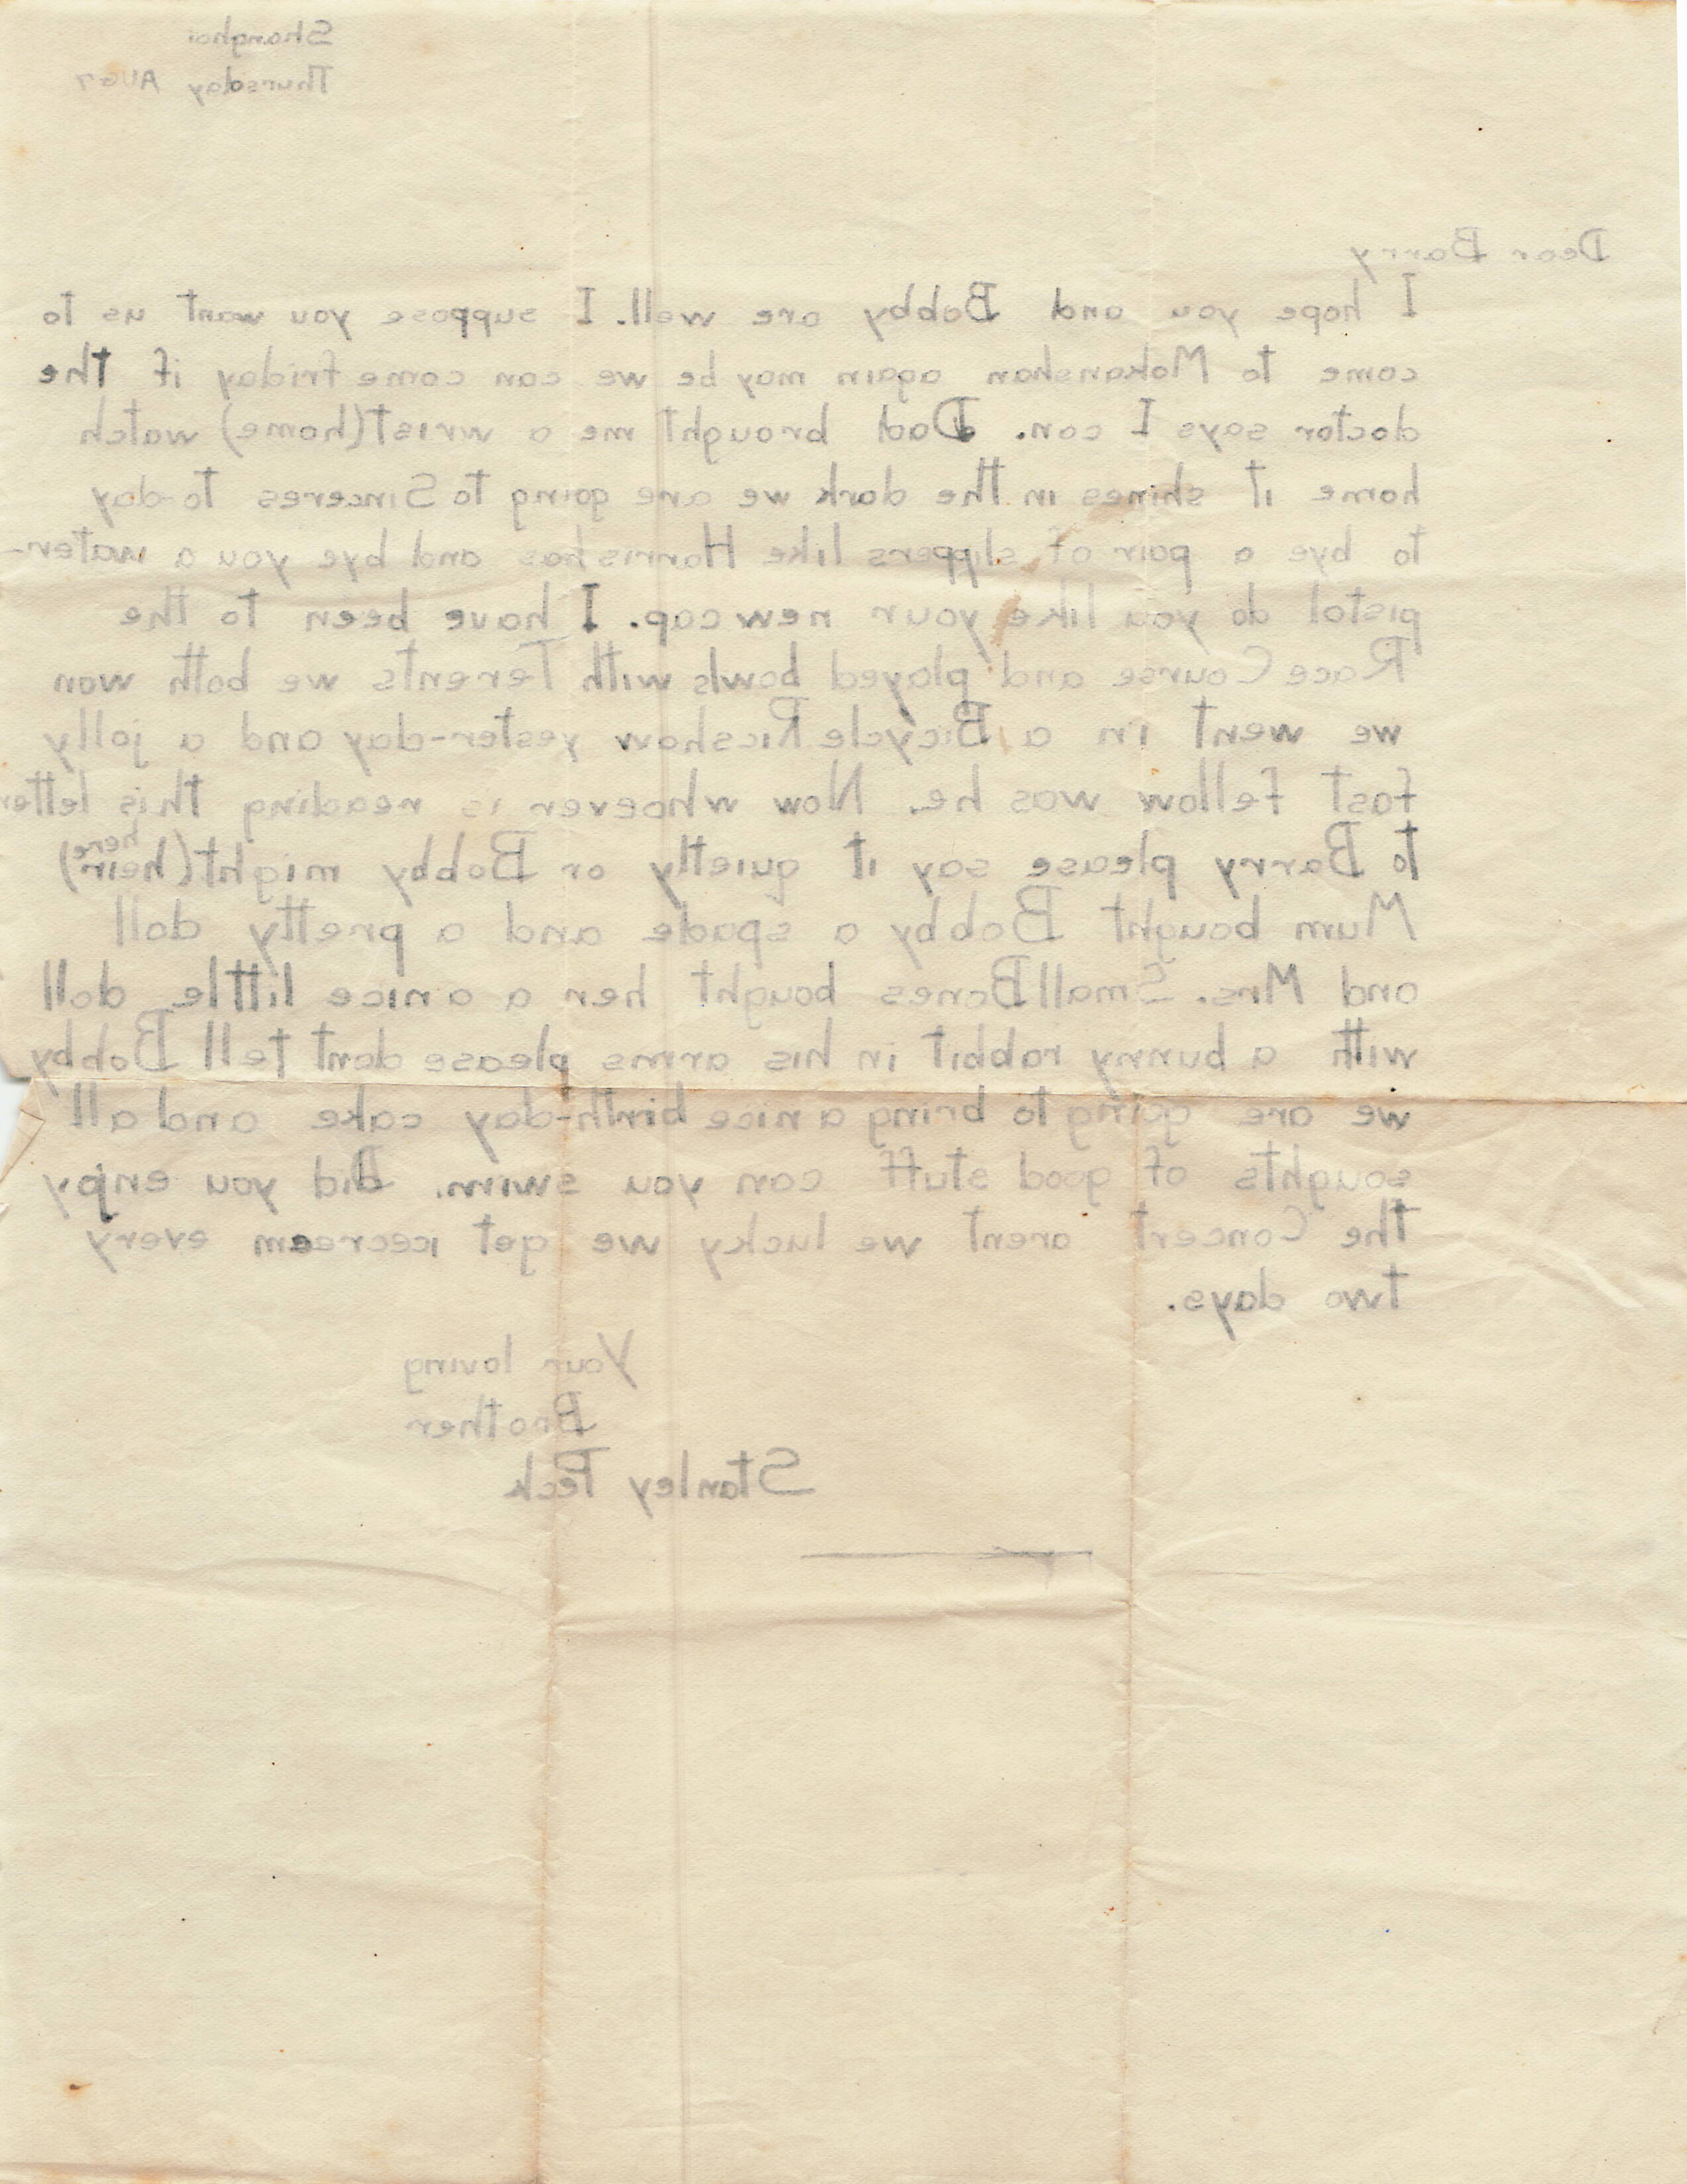 Shanghai
Thursday AUG 7
Dear Barry
I hope you and Bobby are well. I suppose you want us to
come to Mokanshan again may be we can come friday if the
doctor says I can. Dad brought me a wrist (home) watch
home it shines in the dark we are going to Sinceres to-day
to bye a pair of slippers like Harris has and bye you a water-
pistol do you like your new cap. I have been to the
Race Course and played bowls with Terents we both won
we went in a Bicycle Ricshow yester-day and a jolly
fast fellow was he. Now whoever is reading this letter
to Barry please say it quietly or Bobby might (heir) here
Mum bought Bobby a spade and a pretty doll
and Mrs. Small Bones bought her a a nice little doll
with a bunny rabbit in his arms please dont tell Bobby
we are going to bring a nice birth-day cake and all
soughts of good stuff can you swim. Did you enjoy
the Concert arent we lucky we get icecream every
two days.
Your loving
Brother
Stanley Peck